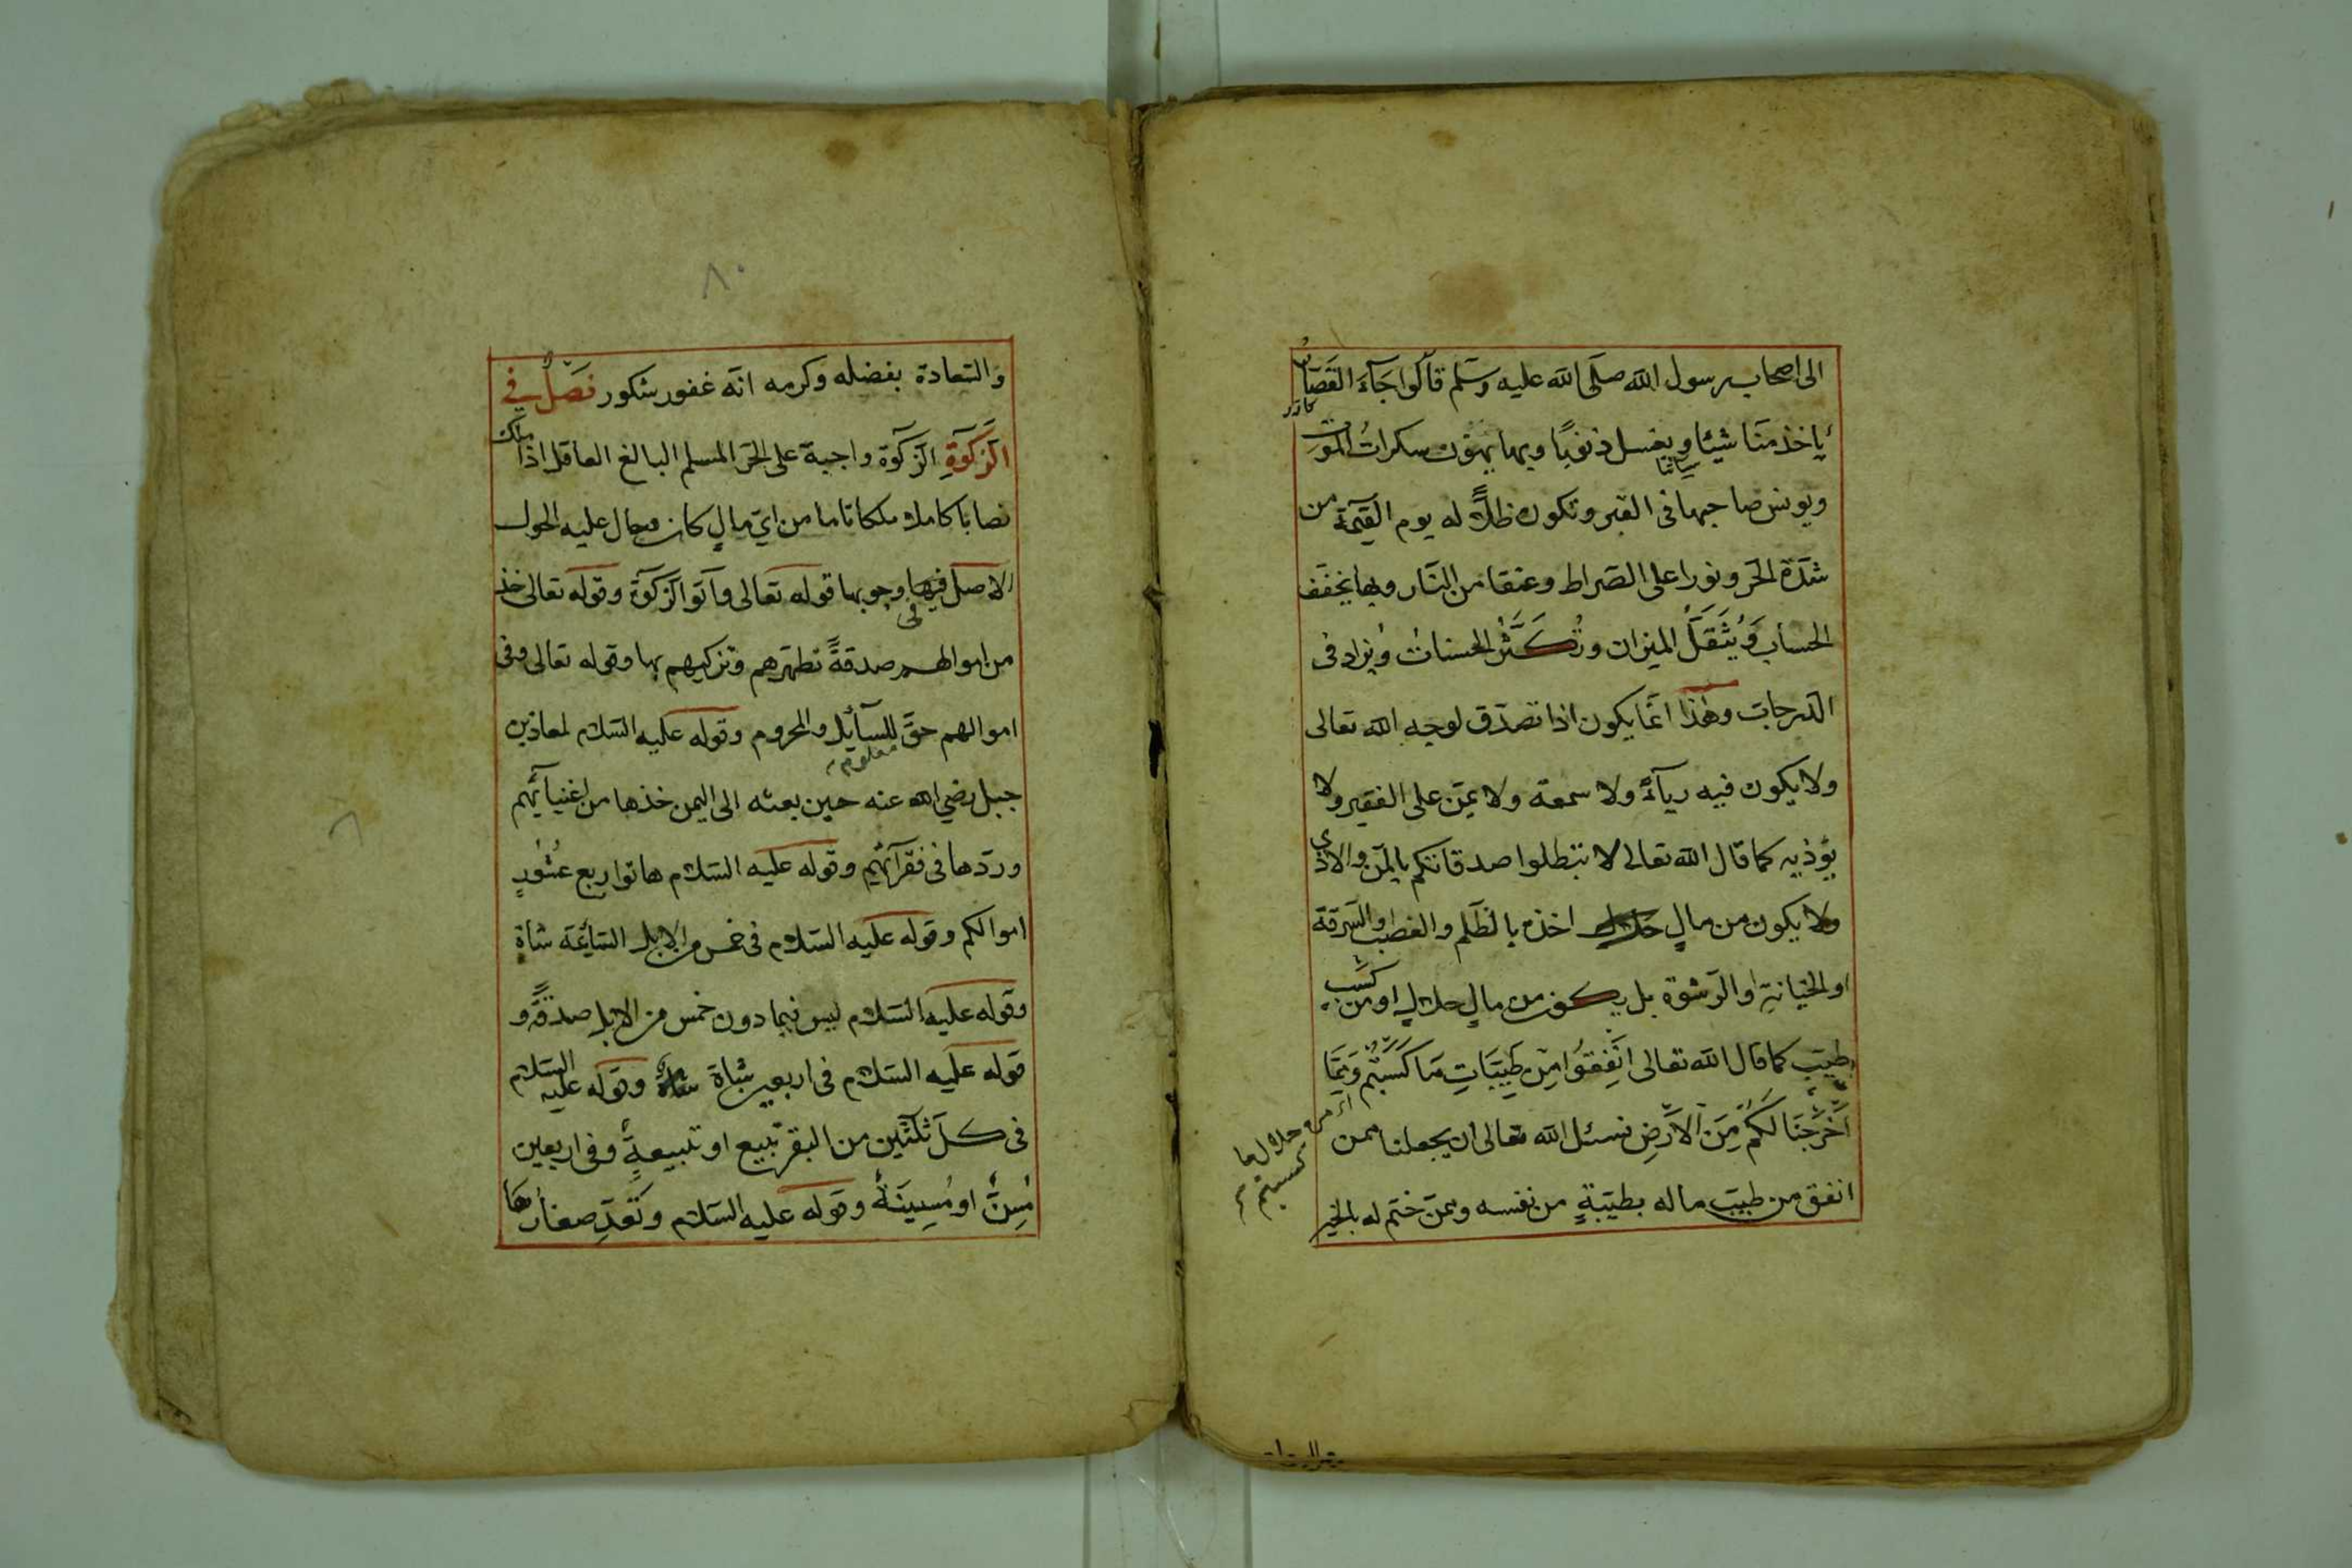 الى اصحاب رسول الله صلى الله عليه وسلم قالوا جآء القصّاب
ياخذ منا شيئا ويغسل ذنوبنا وبها يهون سكرات الموت
ويونس صاحبها فى القبر وتكون ظلّاً له يوم القيمة من
شدّة الحرّ ونورا على الصّراط وعتقا من النّار وبها يخفّف
الحساب ويُثَقَّل الميزان وتُكَثَّر الحسنات ويزاد فى
الدّرجات وهٰذا انّما يكون اذا تصدّق لوجه الله تعالى
ولا يكون فيه رياءً ولا سمعة ولا يمنّ على الفقير ولا
يؤذيه كما قال الله تعالى لا تبطلوا صدقاتكم بالمنّ والاذى
ولا يكون من مالٍ اخذه بالظّلم والغصب والسّرقة
او الخيانةِ او الرّشوة بل يكون من مالٍ حلالٍ او من كسب
طيّب كما قال الله تعالى انفِقوا مِن طيّباتِ مَا كَسَبتُم وَمِمّا
اَخْرَجْنَا لَكُمْ مِنَ الاَرْضِ نسئل الله تعالى ان يجعلنا ممن
انفق من طيّب ماله بطيبةٍ من نفسه وممّن ختم له بالخير
من حلال ما
كسبتم
والسّعادة بفضله وكرمه انّه غفور شكور فصلٌ في
الزّكوةِ الزّكوة واجبة على الحرّ المسلم البالغ العاقل اذا ملك
نصابا كاملا ملكا تاما من ايّ مالٍ كان وحال عليه الحول
الاصل فى وجوبها قوله تعالى وآتوا الزّكوة وقوله تعالى خذ
من اموالهم صدقةً تطهّرهم وتزكيهم بها وقوله تعالى وفى
اموالهم حقّ معلوم للسآئل والمحروم وقوله عليه السّلام لمعاذ بن
جبل رضي الله عنه حين بعثه الى اليمن خذها من اغنيآئهم
وردّها فى فقرآئهم وقوله عليه السّلام هاتوا ربع عُشُورِ
اموالكم وقوله عليه السّلام فى خمس من الابل السّائمة شاة
وقوله عليه السّلام ليس فيما دون خمس من الابل صدقةً و
قوله عليه السّلام فى اربعين شاة شاة وقوله عليه السّلام
فى كلّ ثلثين من البقر تبيع او تبيعةٍ وفى اربعين
مُسِنّ او مُسِينَةٌ وقوله عليه السّلام وتُعَدّ صغارُها
٨٠